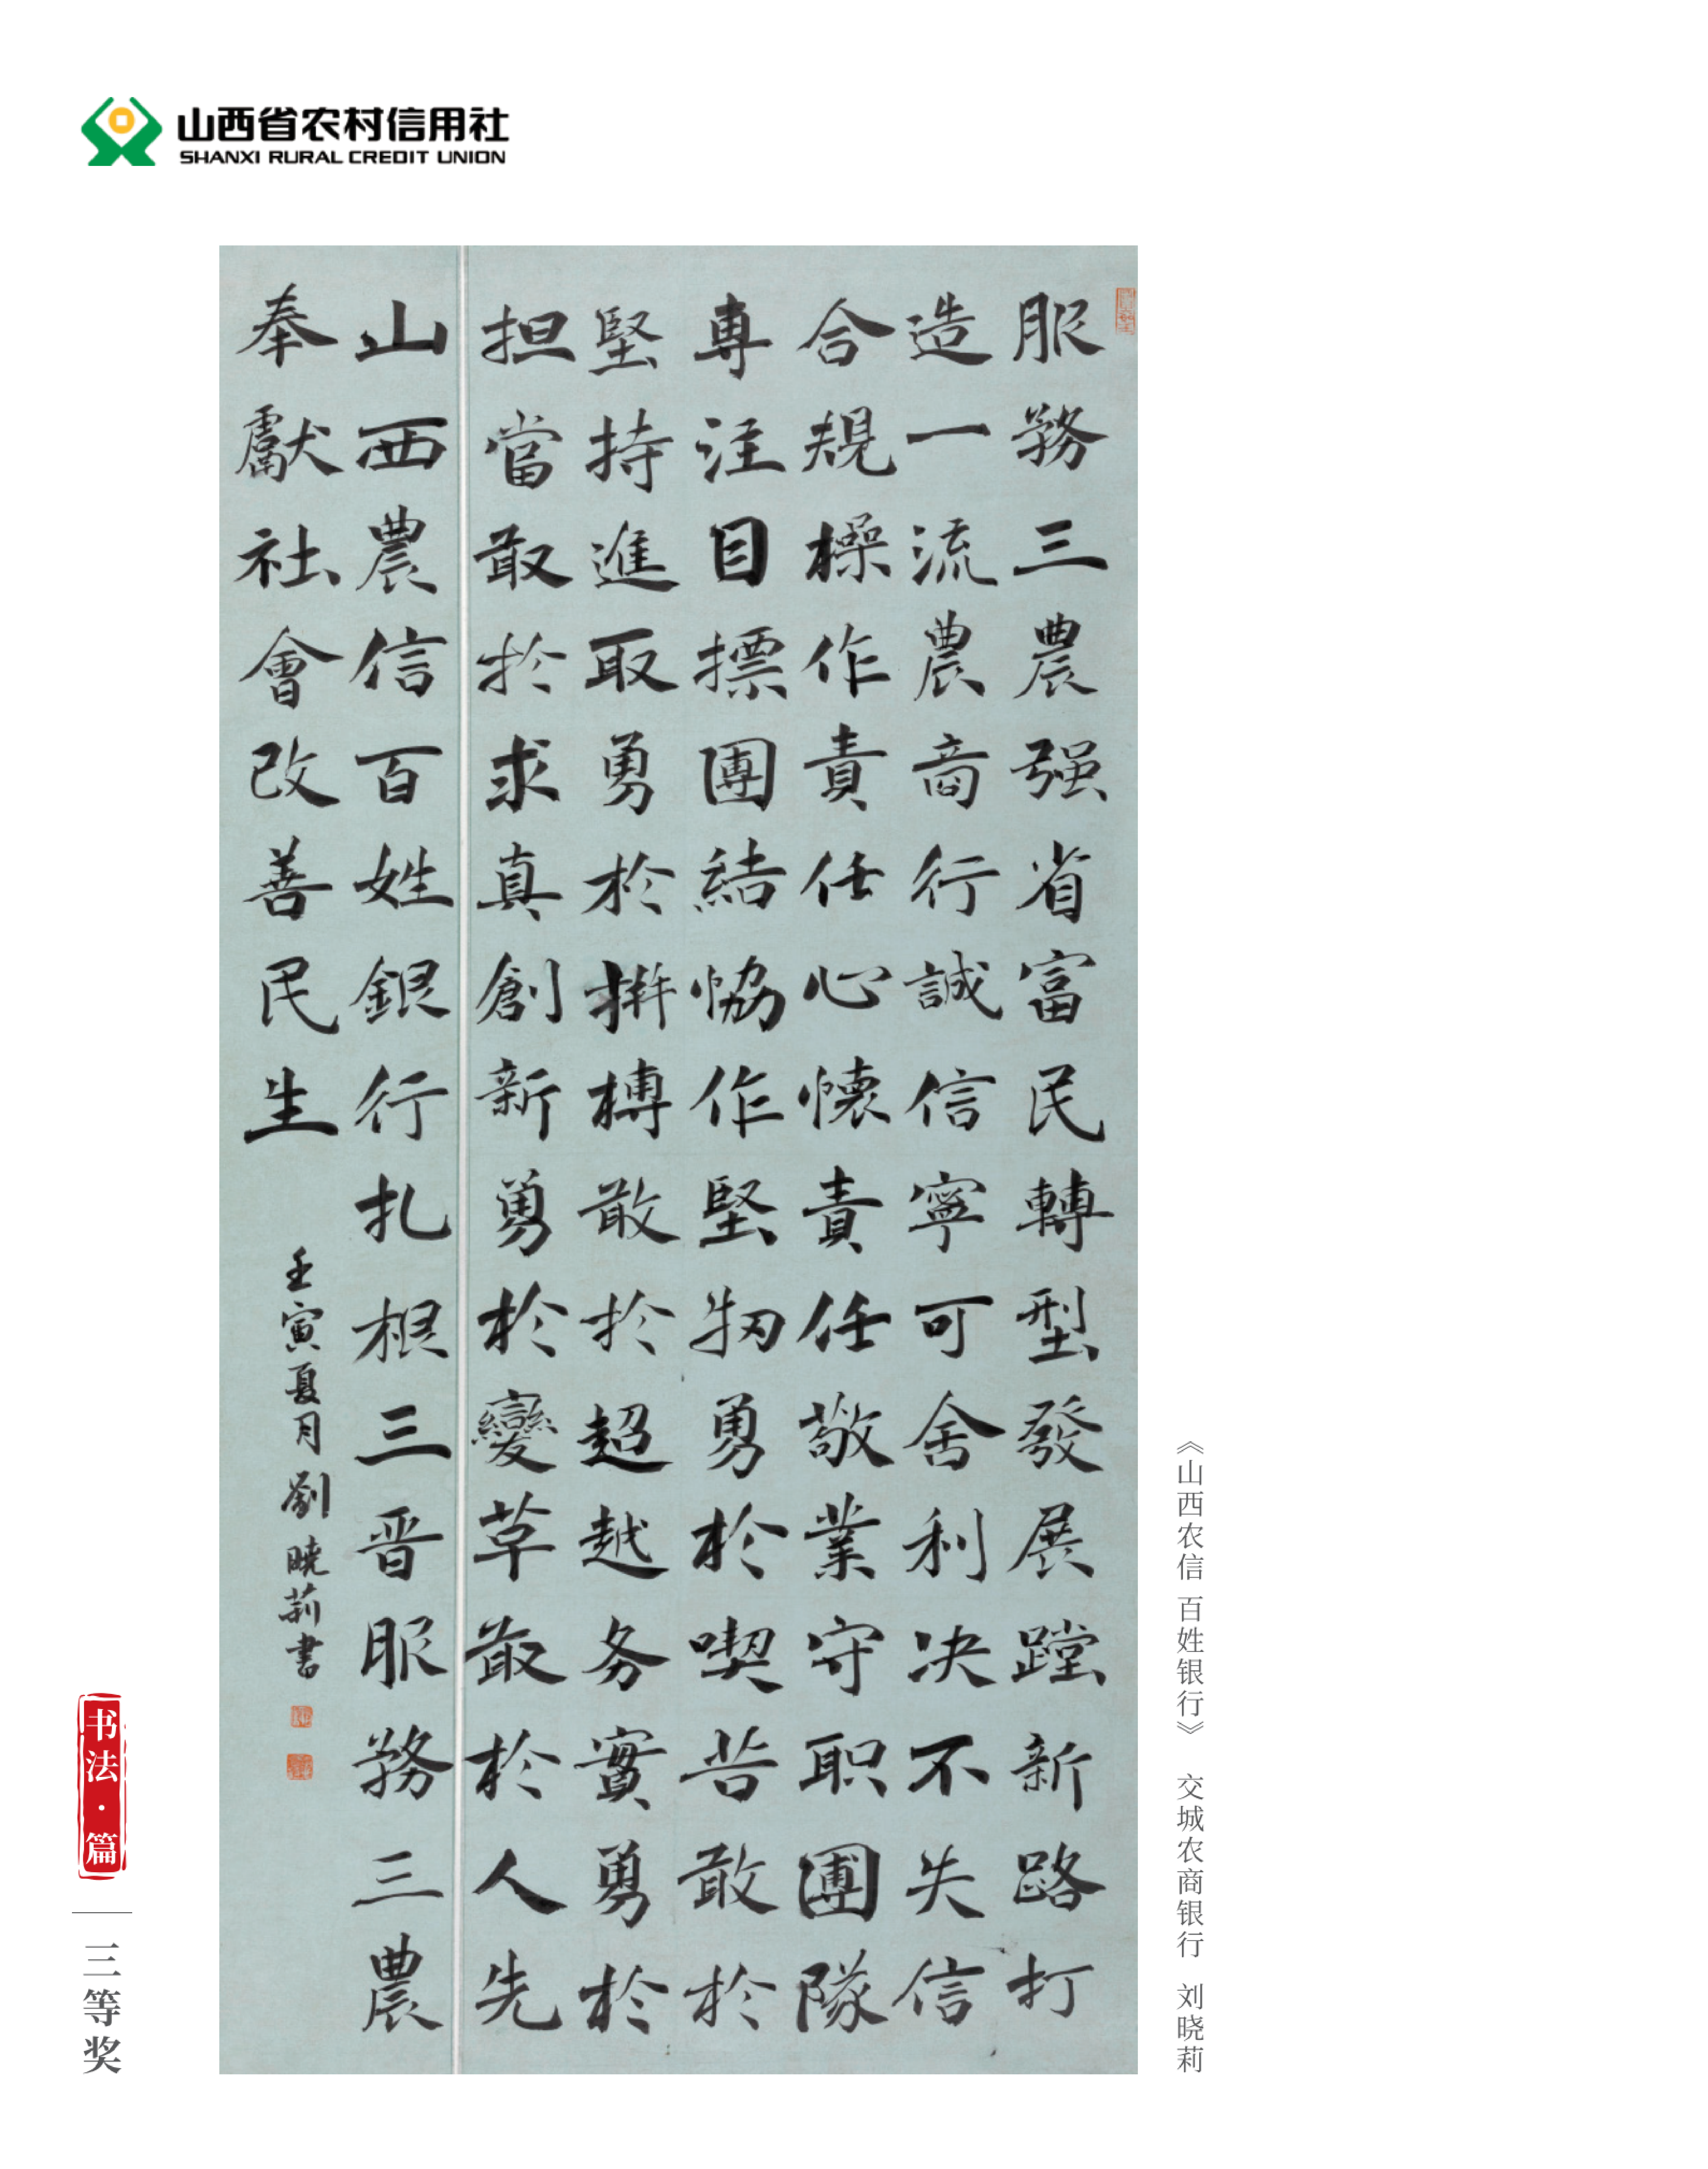 山西省农村信用社
SHANXI RURAL CREDIT UNION
服務三農强省富民轉型發展蹚新路打
造一流農商行誠信寧可舍利决不失信
合規操作責任心懷責任敬業守职團隊
專注目摽團結恊作堅韧勇於喫苦敢於
堅持進取勇於拼搏敢於超越务實勇於
担當敢於求真創新勇於變革敢於人先
山西農信百姓銀行扎根三晋服務三農
奉獻社會改善民生
壬寅夏月劉曉莉書
《山西农信 百姓银行》 交城农商银行 刘晓莉
书法·篇
三等奖